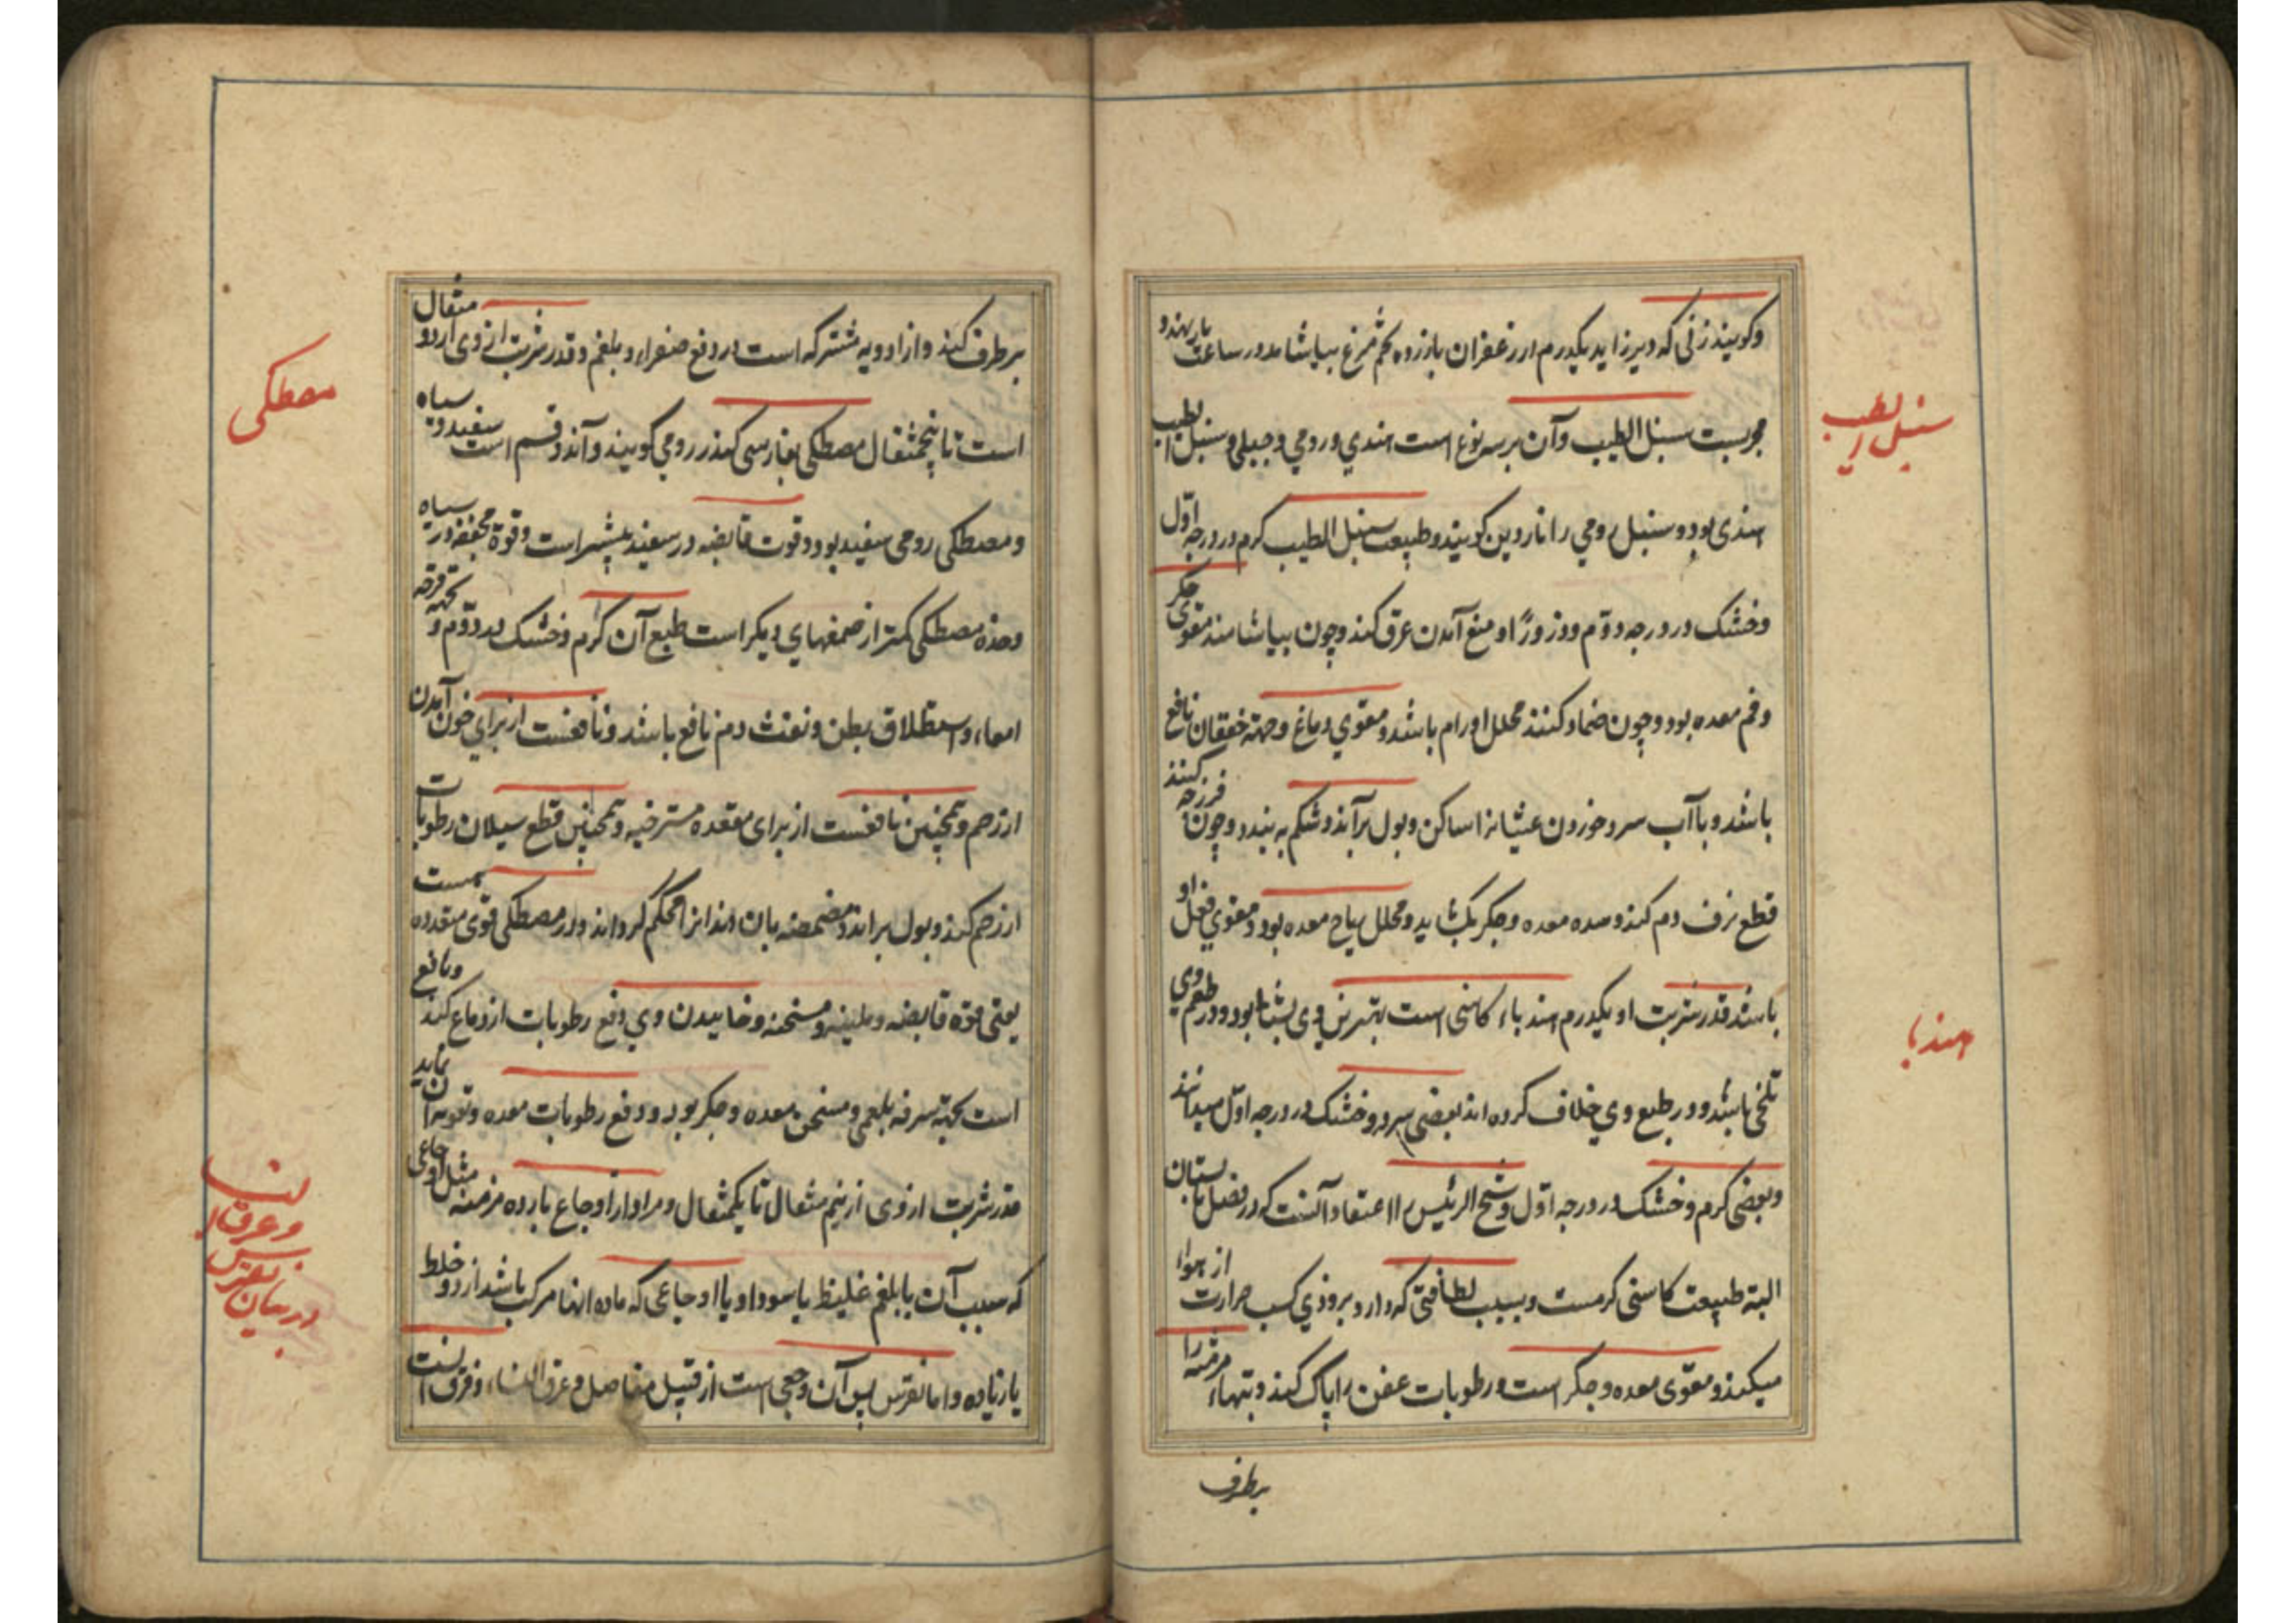 وکویند زنی که دیر زاید یکدرم از زعفران بازرده تخم مرغ بیاشامد در ساعت بار بنهد و
مجربست سنبل الطیب وآن بر سه نوع است هندي ورومي وجبلي وسنبل الطیب
سنبل الطیب
هندی بود وسنبل رومي را ناردین کویند وطبیعت سنبل الطیب کرم در درجه اوّل
وخشک در درجه دوّم وذرورًا او منع آمدن عرق کند وچون بیاشامند مقوی جکر
وفم معده بود وچون ضماد کنند محلل اورام باشد ومقوي دماغ وجهة خفقان نافع
باشد وبا آب سرد خوردن غثیانرا ساکن وبول برآند وشکم به بندد وچون فرزجه کنند
قطع نزف دم کند وسده معده وجکر بکشاید ومحلل ریاح معده بود ومقوي فعل او
باشد قدر شربت او یکدرم هندباء کاسنی است بهترین وی بود ودر طعم وي
هندبا
تلخی باشد ودر طبع وي خلاف کرده اند بعضی سرد وخشک در درجه اوّل میدانند
وبعضی کرم وخشک در درجه اوّل وشیخ الرئیس را اعتقاد آنست که در فصل تابستان
البته طبیعت کاسنی کرمست وبسبب لطافتی که دارد بزودي کسب حرارت از هوا
میکند ومقوی معده وجکر است ورطوبات عفن را پاک کند وتبهاء مزمنه را
برطرف
برطرف کند واز ادویه مشترکه است در دفع صفراء وبلغم وقدر شربت از وی از دو مثقال
است تا پنجمثقال مصطکی بفارسی کندر رومي کویند وآن دو قسم است سفید وسیاه
مصطکی
ومصطکی رومی سفید بود وقوت قابضه در سفید بیشتر است وقوة مجففه در سیاه
وحدة مصطکی کمتر از صمغهاي دیکر است طبع آن کرم وخشک در دوّم و قرحه
امعاء واستطلاق بطن ونفث دم نافع باشد ونافعست از برای خون آمدن
از رحم وهمچنین نافعست از برای مقعده مسترخیه وهمچنین قطع سیلان رطوبات
از رحم کند وبول براند ومضمضه بان دندانرا محکم کرداند ودر مصطکی قوی متعدده هست
یعنی قوة قابضه وملینه ومسخنه وخاییدن وي دفع رطوبات از دماغ کند ونافع
است بجهة سرفه بلغمی ومسخن معده وجکر بود ودفع رطوبات معده وتقویه ان نماید
قدر شربت از وی از نیم مثقال تا یکمثقال ومر اوجاع بارده مزمنه مثل اوجاعی
که سبب آن یا بلغم غلیظ یا سودا ویا اوجاعی که ماده انها مرکب باشد از دو خلط
یا زیاده واما نقرس پس آن وجعی است از قبیل مفاصل وعرق النساء وفرق
در بیان نقرس
وعرق النسا